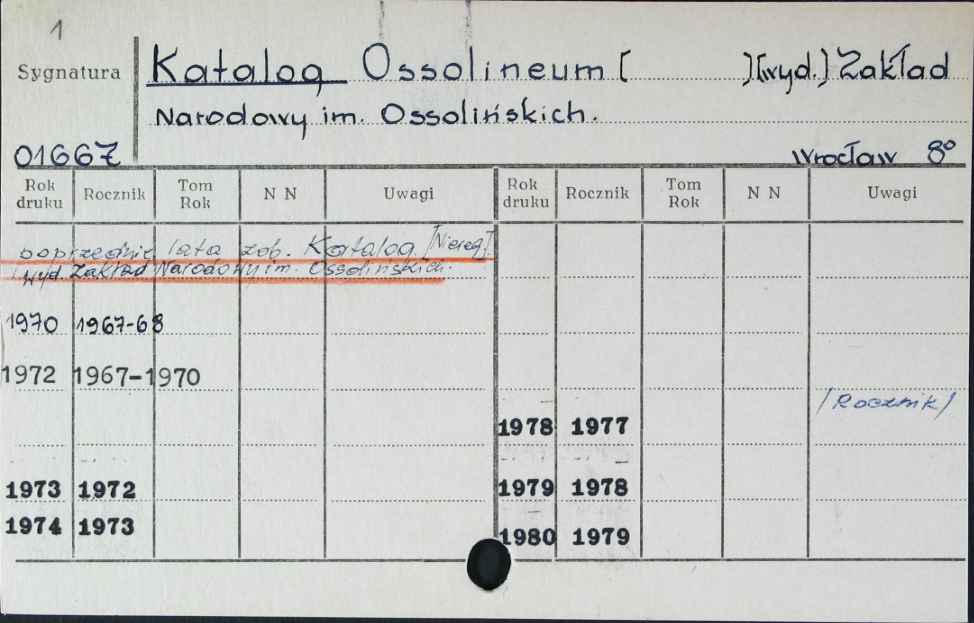 1
Sygnatura
Katalog Ossolineum [ ] [wyd.] Zakład
Narodowy im. Ossolińskich.
01667
Wrocław 8°
Rok druku Rocznik Tom Rok N N Uwagi Rok druku Rocznik Tom Rok N N Uwagi
poprzednie lata zob. Katalog [Niereg]
wyd. Zakład Narodowy im. Ossolińskich.
1970 1967-68
1972 1967-1970
/Rocznik/
1978 1977
1973 1972
1979 1978
1974 1973
1980 1979